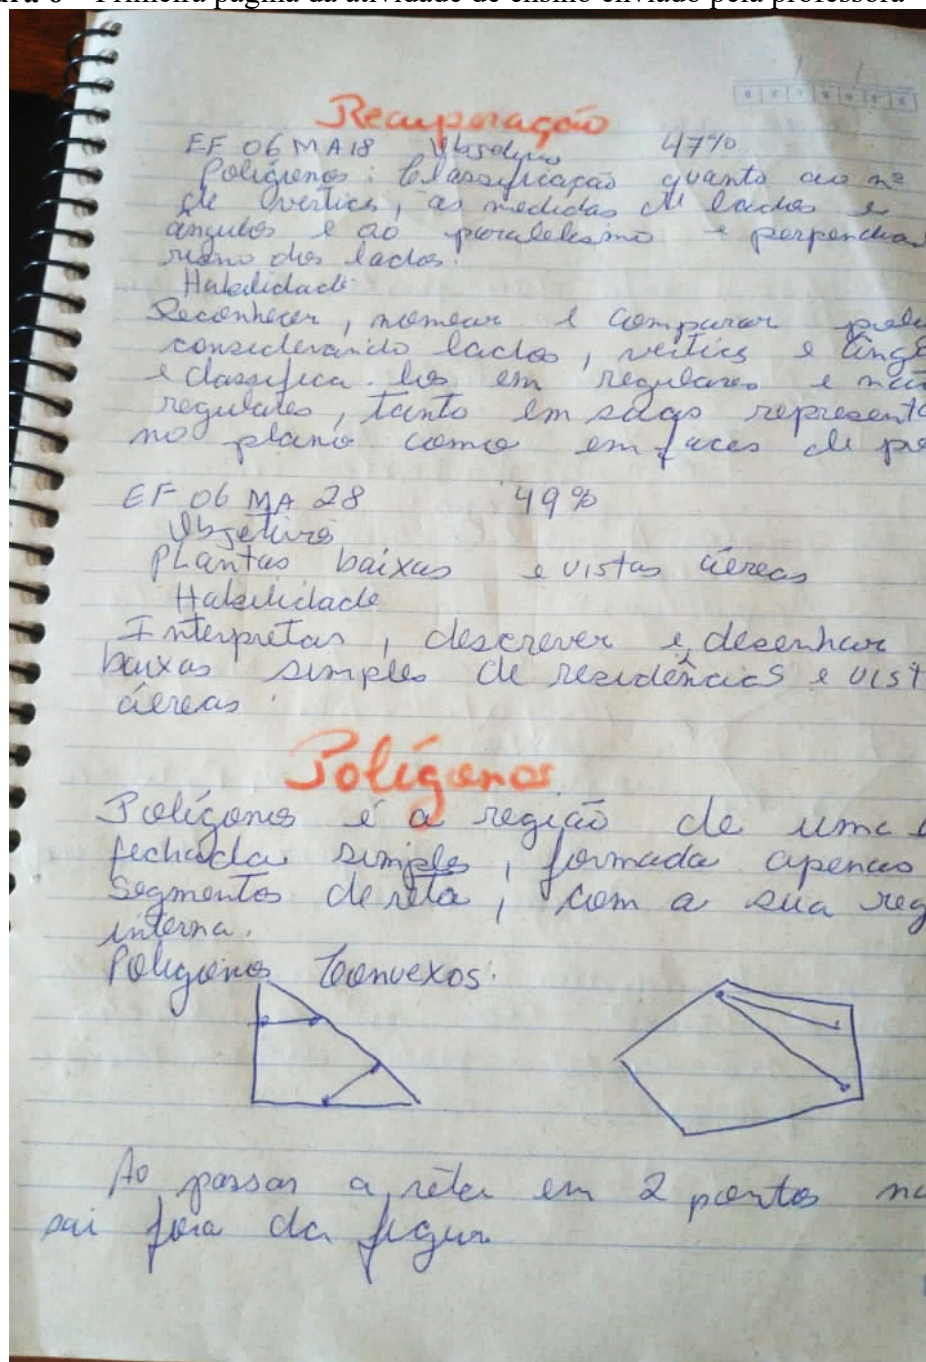 Primeira página da atividade de ensino enviado pela professora
Recuperação
EF 06 MA18 Objetivo 47%
Polígonos: Classificação quanto ao nº
de vertics, as medidas de lados e
ângulos e ao paralelismo e perpendicu
rismo dos lados.
Habilidade
Reconhecer, nomear e comparar
considerando lados, vértics e
e classifica-los em regulares e
regulares, tanto em suas
no plano como em faces de
EF 06 MA 28 49%
Objetivo
Plantas baixas e vistas áereas
Habilidade
Interpretar, descrever e desenhar
baixas simples de residências e vist
áereas.
Polígonos
Polígonos é a região de uma
fechada simples, formada apenas
segmentos de reta, com a sua reg
interna.
Polígonos Convexos:
Ao passar a reta em 2 pontos
sai fora da figur